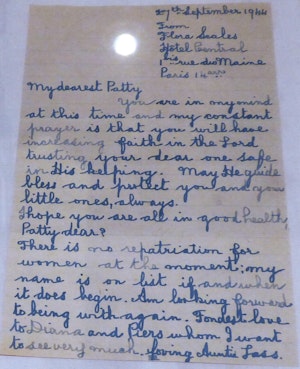 27th September 1944
From
Flora Scales
Hôtel Central
1bis rue du Maine
Paris 14ème
My dearest Patty
You are in my mind
at this time and my constant
prayer is that you will have
increasing faith in the Lord
trusting your dear one safe
in His keeping. May He guide
bless and protect you and your
little ones, always.
I hope you are all in good health,
Patty dear?
There is no repatriation for
women at the moment; my
name is on list if and when
it does begin. Am looking forward
to being with again. Fondest love
to Diana and Piers whom I want
to see very much, loving Auntie Lass.